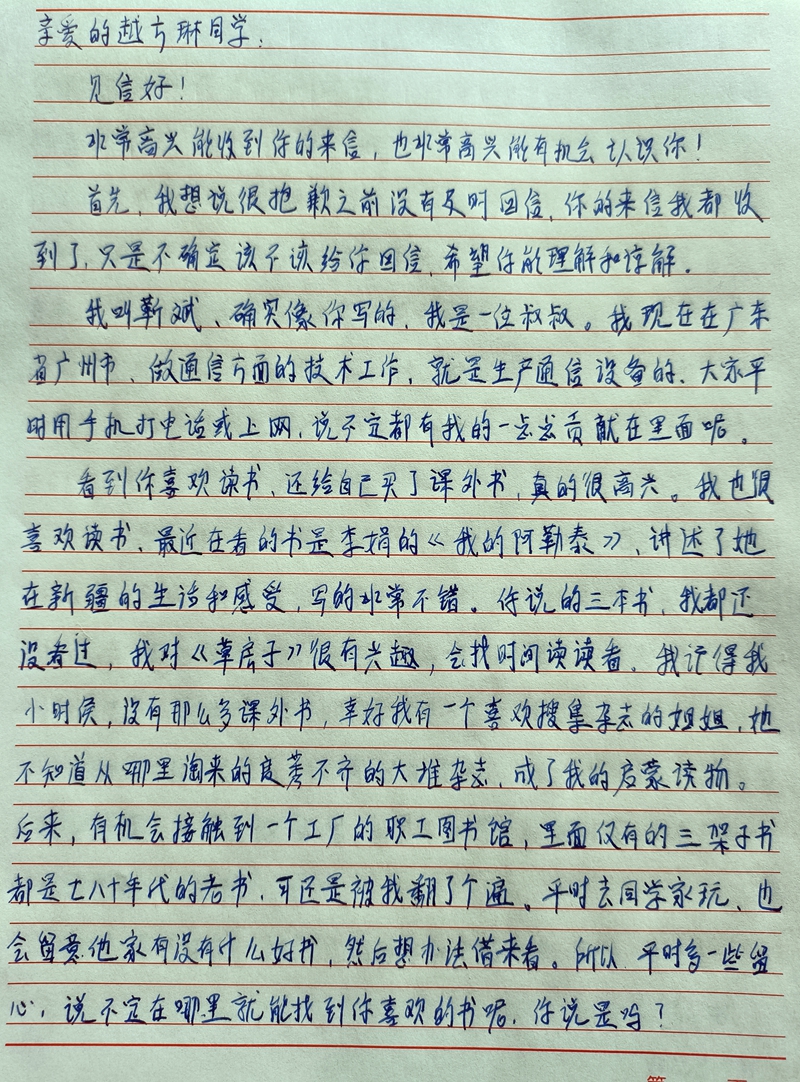 亲爱的越方琳同学：
见信好！
非常高兴能收到你的来信，也非常高兴能有机会认识你！
首先，我想说很抱歉之前没有及时回信，你的来信我都收
到了，只是不确定该不该给你回信，希望你能理解和谅解。
我叫靳斌，确实像你写的，我是一位叔叔。我现在在广东
省广州市，做通信方面的技术工作，就是生产通信设备的，大家平
时用手机打电话或上网，说不定都有我的一点点贡献在里面呢。
看到你喜欢读书，还给自己买了课外书，真的很高兴。我也很
喜欢读书，最近在看的书是李娟的《我的阿勒泰》，讲述了她
在新疆的生活和感受，写的非常不错。你说的三本书，我都还
没看过，我对《草房子》很有兴趣，会找时间读读看。我记得我
小时侯，没有那么多课外书，幸好我有一个喜欢搜集杂志的姐姐，她
不知道从哪里淘来的良莠不齐的大堆杂志，成了我的启蒙读物。
后来，有机会接触到一个工厂的职工图书馆，里面仅有的三架子书
都是七八十年代的老书，可还是被我翻了个遍。平时去同学家玩，也
会留意他家有没有什么好书，然后想办法借来看。所以，平时多一些留
心，说不定在哪里就能找到你喜欢的书呢，你说是吗？
第